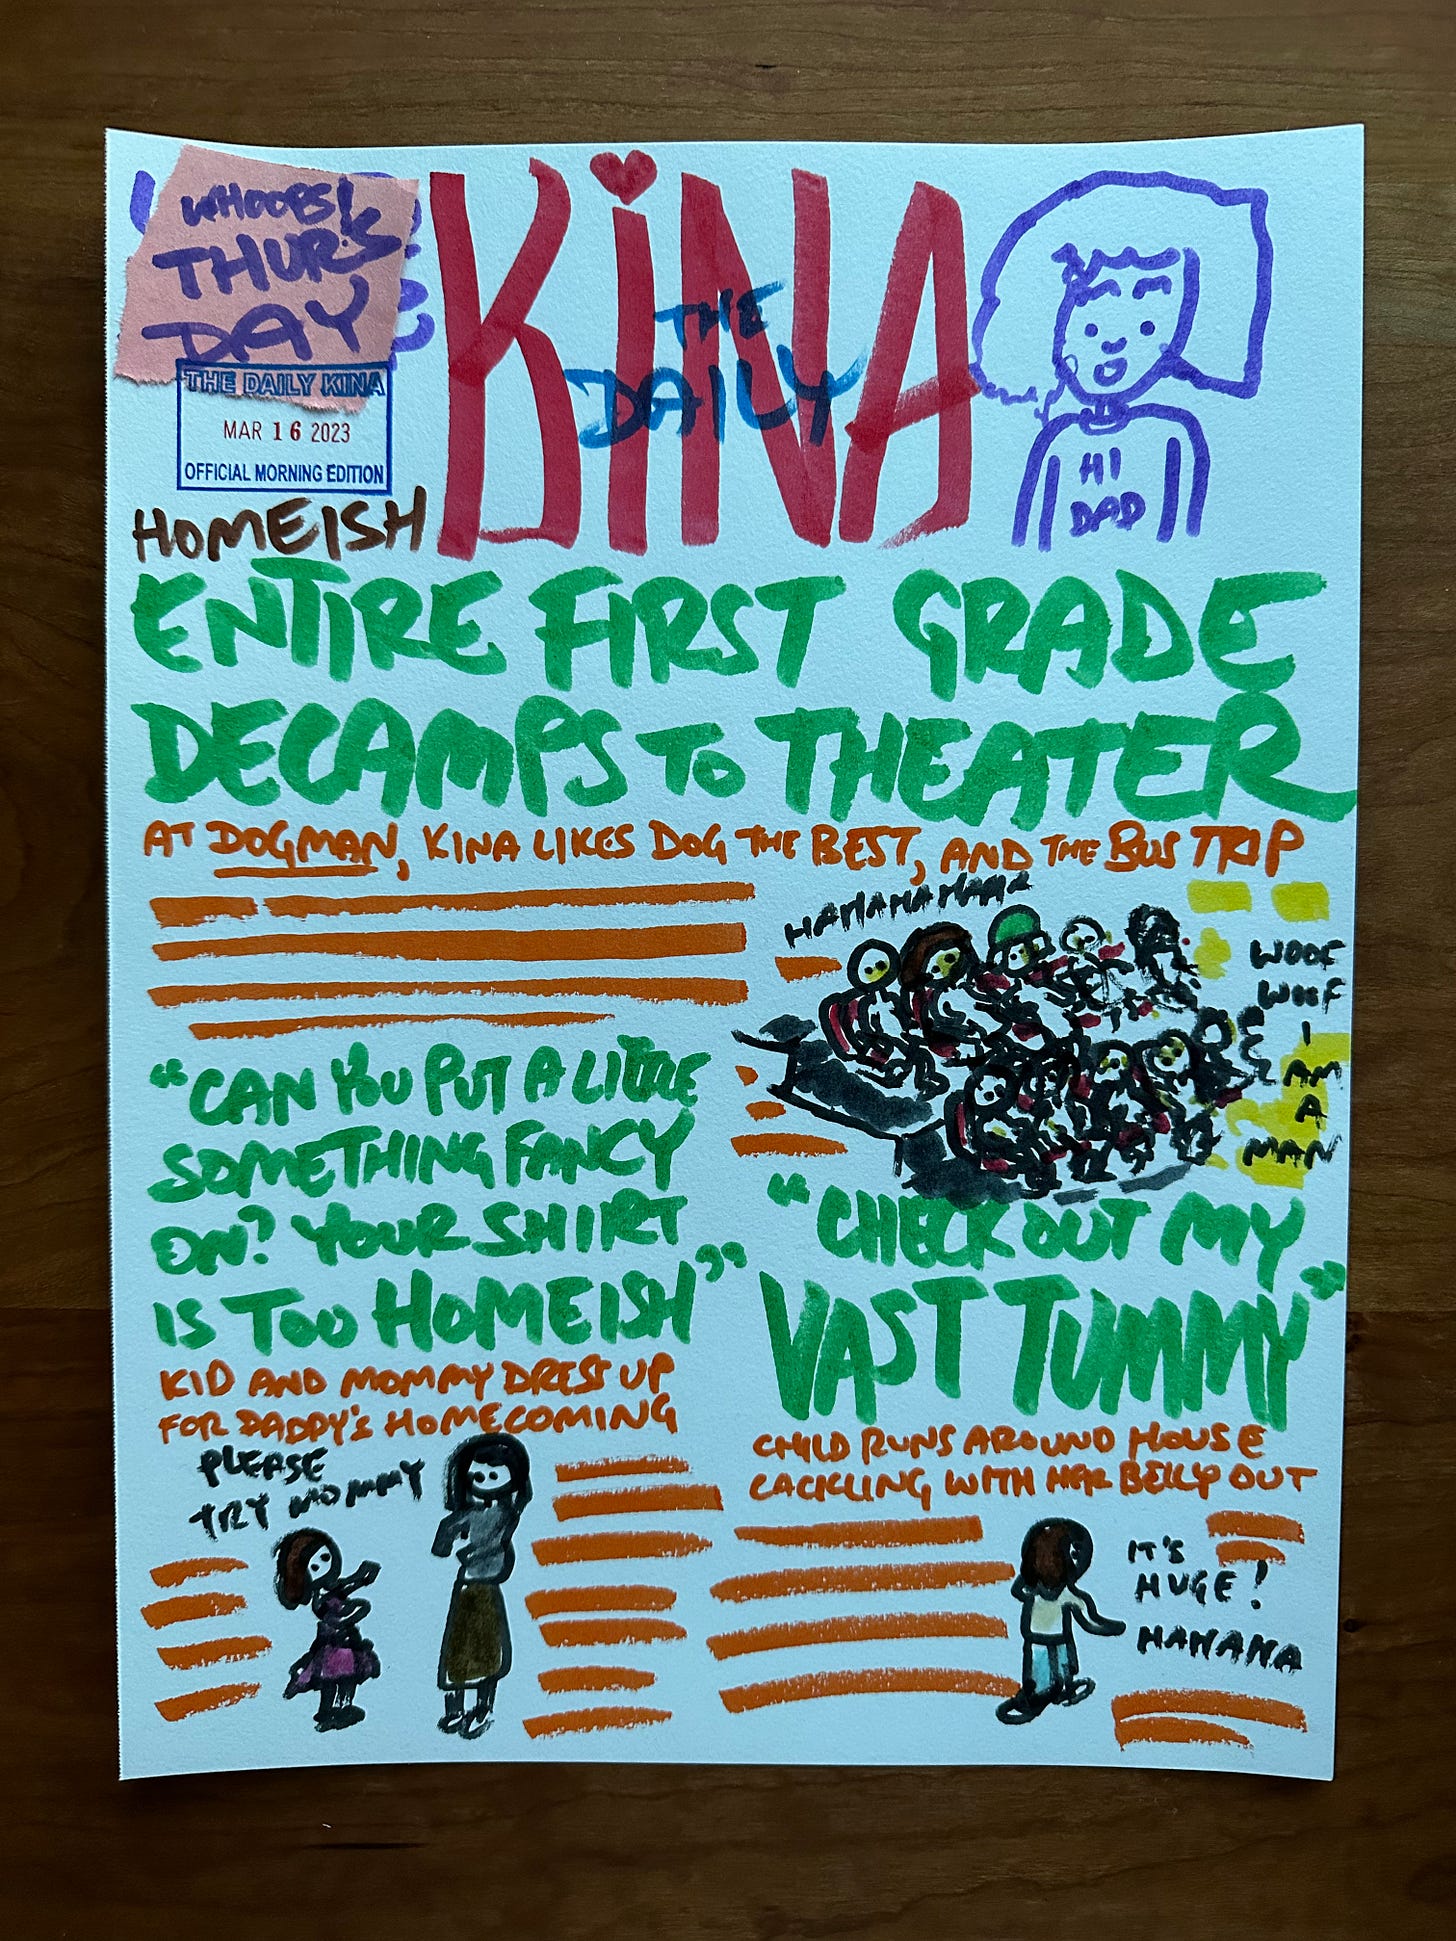 WHOOPS!
THURS
DAY
THE DAILY KINA
MAR 16 2023
OFFICIAL MORNING EDITION
HOMEISH
KiNA
THE
DAILY
HI
DAD
ENTIRE FIRST GRADE
DECAMPS TO THEATER
AT DOGMAN, KINA LIKES DOG THE BEST, AND THE BUS TRIP
HAHAHAHAHA
WOOF
WOOF
I
AM
A
MAN
"CAN YOU PUT A LITTLE
SOMETHING FANCY
ON? YOUR SHIRT
IS TOO HOMEISH"
KID AND MOMMY DRESS UP
FOR DADDY'S HOMECOMING
PLEASE
TRY MOMMY
"CHECK OUT MY
VAST TUMMY"
CHILD RUNS AROUND HOUSE
CACKLING WITH HER BELLY OUT
IT'S
HUGE!
HAHAHA